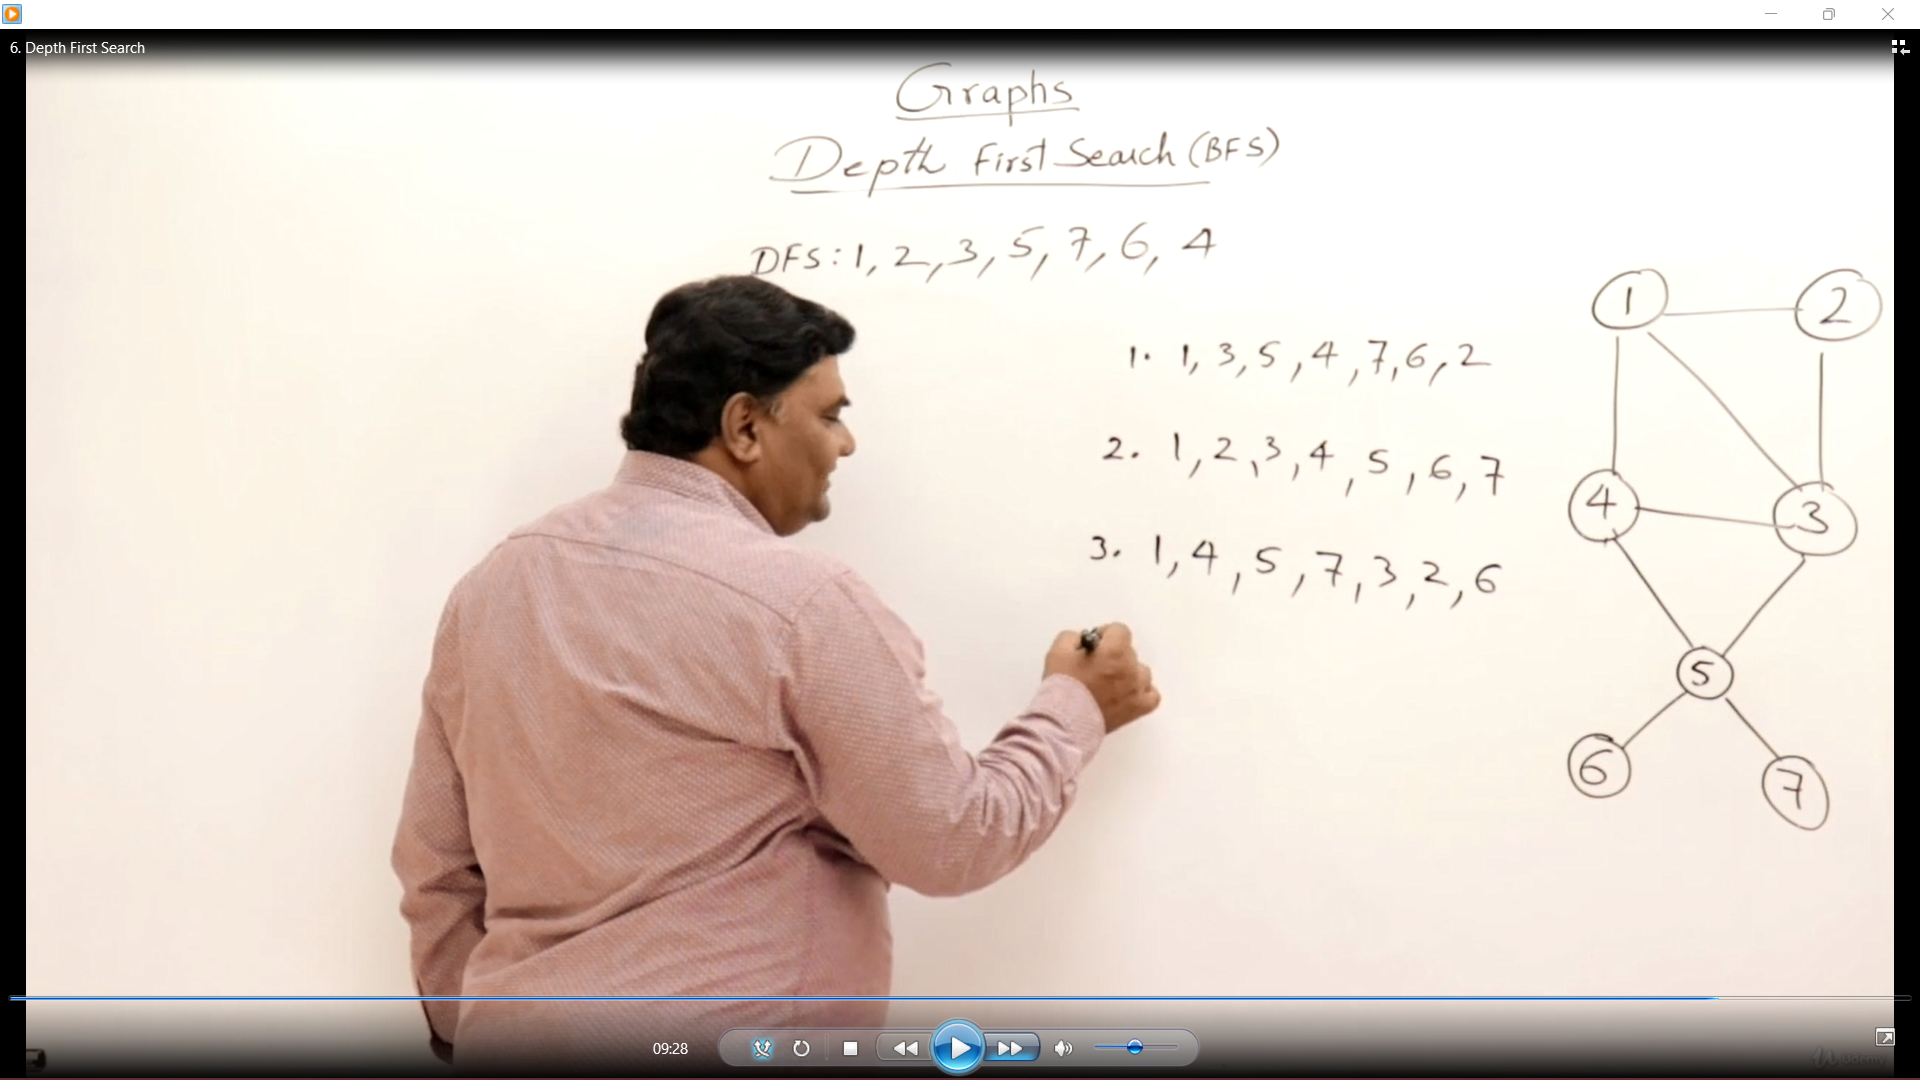 6. Depth First Search
Graphs
Depth First Search (BFS)
DFS: 1, 2, 3, 5, 7, 6, 4
1. 1, 3, 5, 4, 7, 6, 2
2. 1, 2, 3, 4, 5, 6, 7
3. 1, 4, 5, 7, 3, 2, 6
1
2
4
3
5
6
7
09:28
Udemy